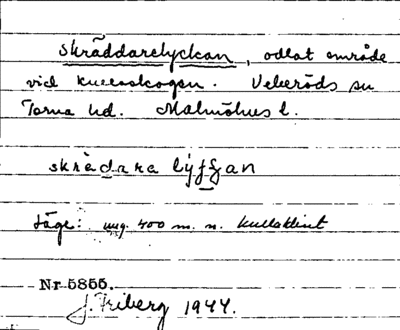 Skräddarelyckan, odlat område
vid Kullaskogen. Veberöds sn
Torna hd. Malmöhus l.
skrädara
Läge: ung. 400 m. n. Kullaklint
Nr 5855.
J. Friberg 1944.